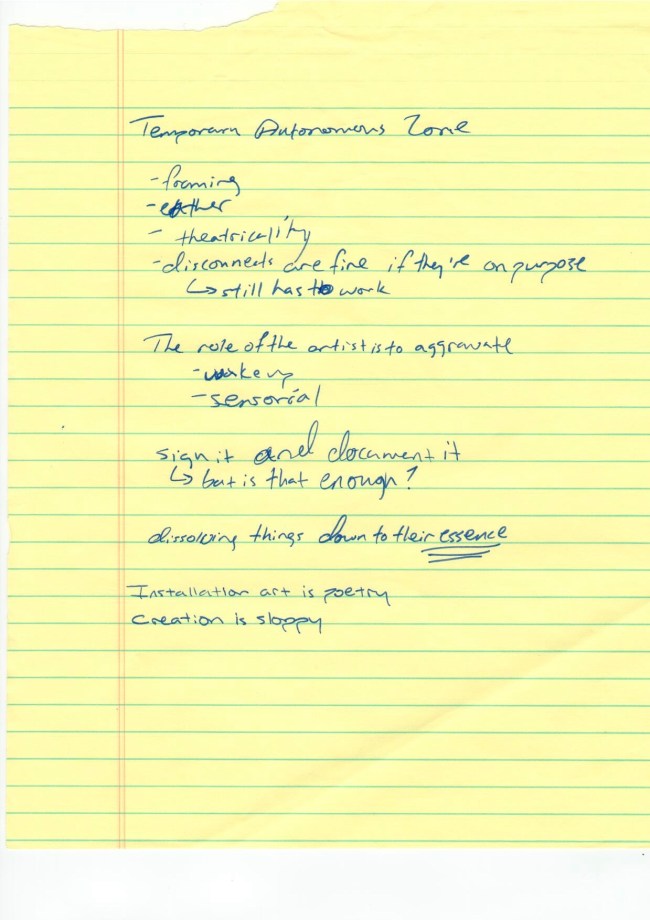 Temporary Autonomous Zone
- framing
-
- theatricality
- disconnects are fine if they're on purpose
↳ still has to work
The role of the artist is to aggravate
- wake up
- sensorial
sign it and document it
↳ but is that enough?
dissolving things down to their essence
Installation art is poetry
Creation is sloppy